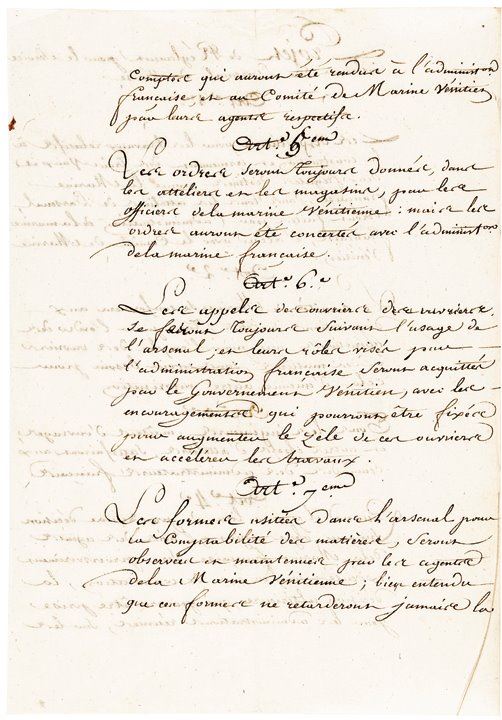 Comptes qui auront été rendus à l'administon
française et au Comité de Marine Vénitien
par leurs agents respectifs.
Art.e 5.eme
Les ordres seront toujours donnés, dans
les atteliers et les magasins, par les
officiers de la marine Vénitienne : mais les
ordres auront été concertés avec l'administon
de la marine française.
Art.e 6.e
Les appels des ouvriers
se feront toujours suivant l'usage de
l'arsenal, et leurs rôles visés par
l'administration française seront acquittés
par le Gouvernement Vénitien, avec les
encouragements qui pourront être fixés
pour augmenter le zèle de ces ouvriers
et accélérer les travaux.
Art.e 7.eme
Les formes usitées dans l'arsenal pour
la Comptabilité des matières, seront
observées et maintenues par les agents
de la Marine Vénitienne ; bien entendu
que ces formes ne retarderont jamais la